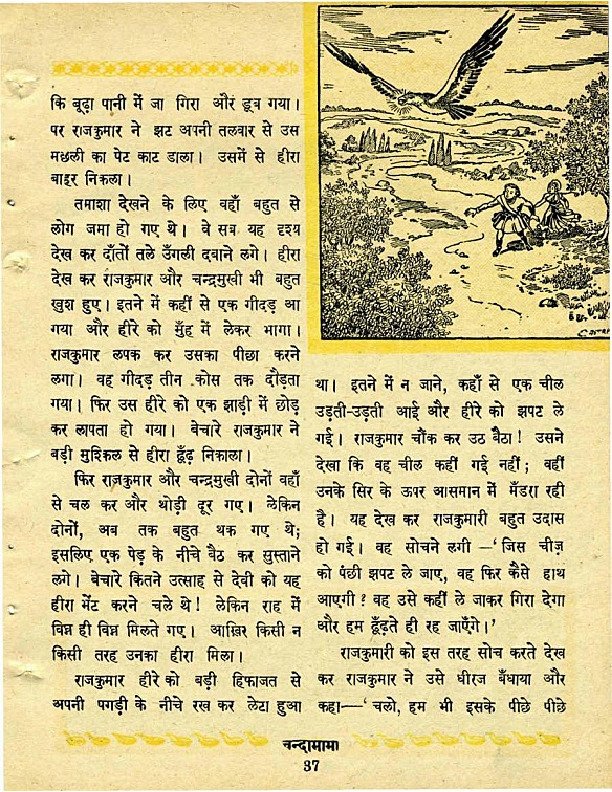 कि बूढ़ा पानी में जा गिरा और डूब गया।
पर राजकुमार ने झट अपनी तलवार से उस
मछली का पेट काट डाला। उसमें से हीरा
बाहर निकला।
तमाशा देखने के लिए वहाँ बहुत से
लोग जमा हो गए थे। वे सब यह दृश्य
देख कर दाँतों तले उँगली दबाने लगे। हीरा
देख कर राजकुमार और चन्द्रमुखी भी बहुत
खुश हुए। इतने में कहीं से एक गीदड़ आ
गया और हीरे को मुँह में लेकर भागा।
राजकुमार लपक कर उसका पीछा करने
लगा। वह गीदड़ तीन कोस तक दौड़ता
गया। फिर उस हीरे को एक झाड़ी में छोड़
कर लापता हो गया। बेचारे राजकुमार ने
बड़ी मुश्किल से हीरा ढूँढ़ निकाला।
फिर राजकुमार और चन्द्रमुखी दोनों वहाँ
से चल कर और थोड़ी दूर गए। लेकिन
दोनों, अब तक बहुत थक गए थे;
इसलिए एक पेड़ के नीचे बैठ कर सुस्ताने
लगे। बेचारे कितने उत्साह से देवी को यह
हीरा भेंट करने चले थे! लेकिन राह में
विघ्न ही विघ्न मिलते गए। आख़िर किसी न
किसी तरह उनका हीरा मिला।
राजकुमार हीरे को बड़ी हिफाजत से
अपनी पगड़ी के नीचे रख कर लेटा हुआ
था। इतने में न जाने, कहाँ से एक चील
उड़ती-उड़ती आई और हीरे को झपट ले
गई। राजकुमार चौंक कर उठ बैठा! उसने
देखा कि वह चील कहीं गई नहीं; वहीं
उनके सिर के ऊपर आसमान में मँडरा रही
है। यह देख कर राजकुमारी बहुत उदास
हो गई। वह सोचने लगी—'जिस चीज़
को पंछी झपट ले जाए, वह फिर कैसे हाथ
आएगी? वह उसे कहीं ले जाकर गिरा देगा
और हम ढूँढ़ते ही रह जाएँगे।'
राजकुमारी को इस तरह सोच करते देख
कर राजकुमार ने उसे धीरज बँधाया और
कहा—'चलो, हम भी इसके पीछे पीछे
चन्दामामा
37